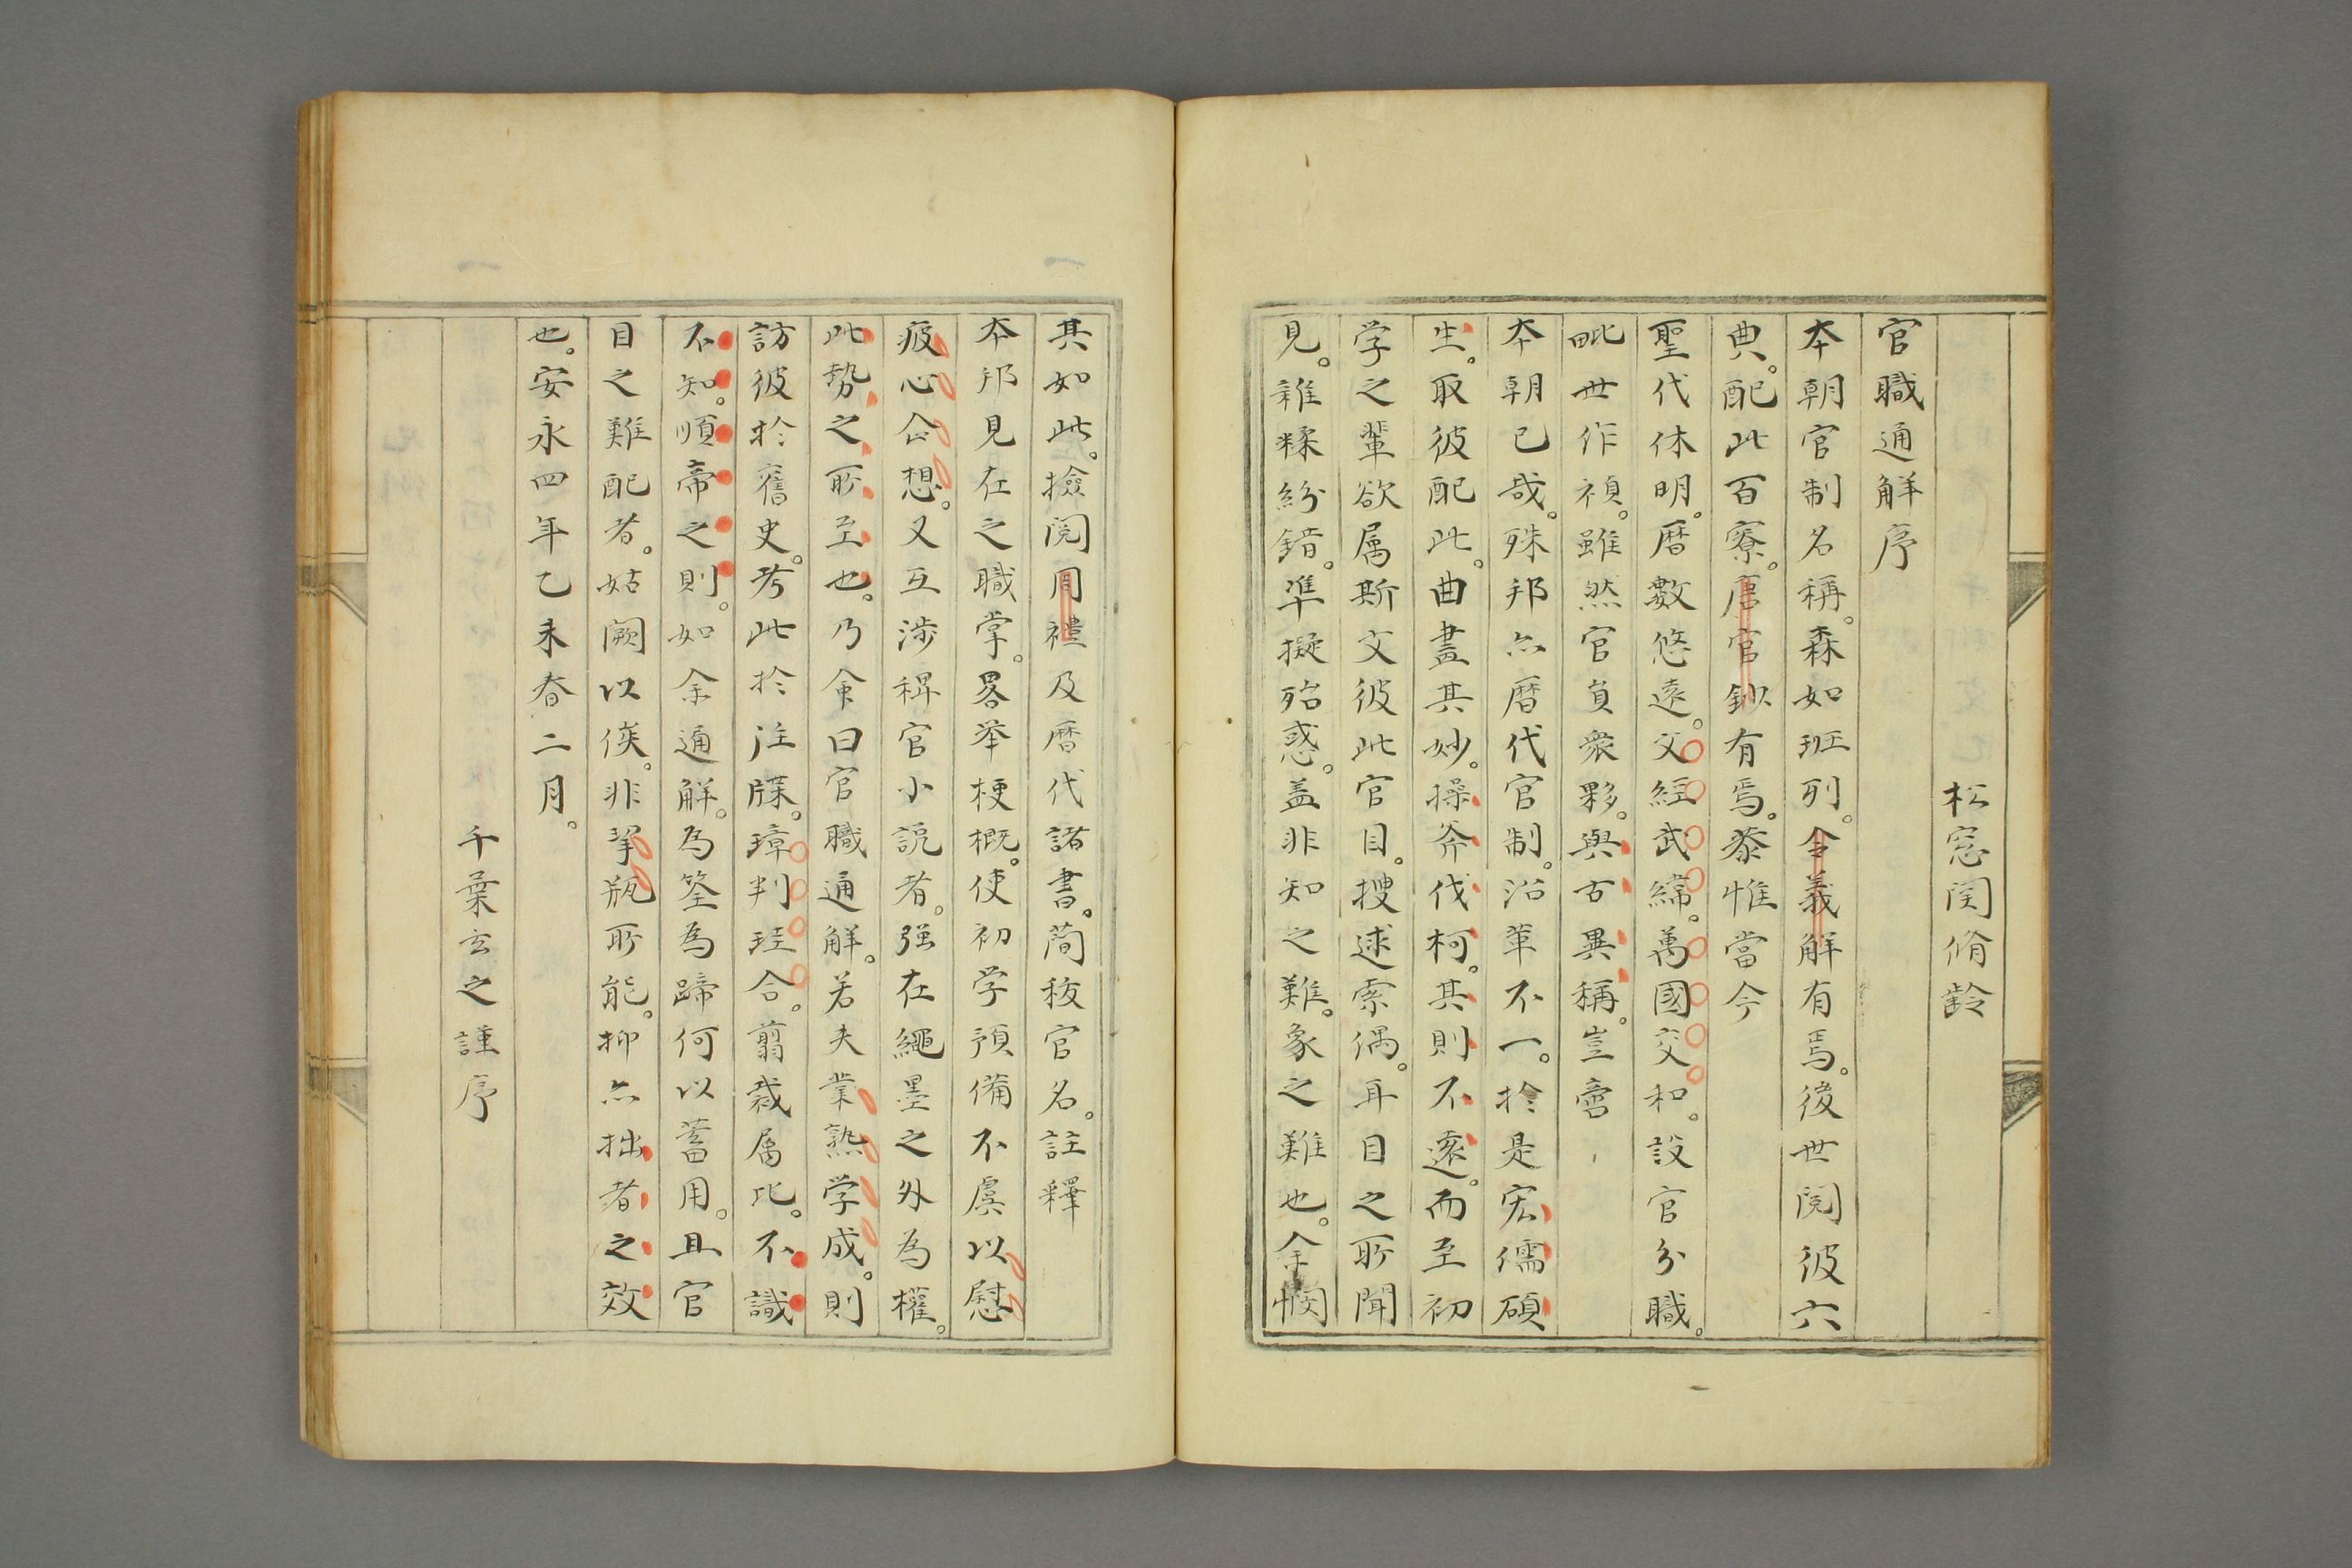 松窓関脩齢
官職通解序
本朝官制名稱。森如班列。令義解有焉。後世閲彼六
典。配此百寮。唐官鈔有焉。恭惟當今
聖代休明。暦數悠遠。文經武緯。萬國交和。設官分職。
毗世作禎。雖然官員衆夥。與古異稱。豈啻
本朝已哉。殊邦亦暦代官制。沿革不一。於是宏儒碩
生。取彼配此。曲盡其妙。操斧伐柯。其則不遠。而至初
学之輩欲属斯文彼此官目。搜逑索偶。耳目之所聞
見。雑糅紛錯。準擬殆惑。盖非知之難。象之難也。余憫
其如此。撿閲周禮及暦代諸書。蕳稡官名。註釋
本邦見在之職掌。畧举梗概。使初学預備不虞以慰
疲心企想。又互渉稗官小説者。强在繩墨之外為權。
此勢之所至也。乃命曰官職通解。若夫業熟学成。則
訪彼於舊史。考此於注牒。璋判珪合。翦裁属比。不識
不知。順帝之則。如余通解。為筌為蹄何以蓄用。且官
目之難配者。姑闕以俟。非挈瓶所能。抑亦拙者之效
也。安永四年乙未春二月。
千葉玄之謹序